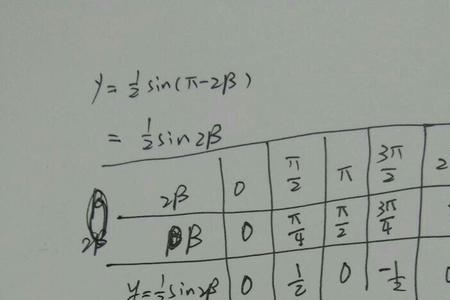 y = 1/2 sin(π-2β)
= 1/2 sin2β
2β 0 π/2 π 3π/2 2
β β 0 π/4 π/2 3π/4
2β
y=1/2 sin2β 0 1/2 0 -1/2 0